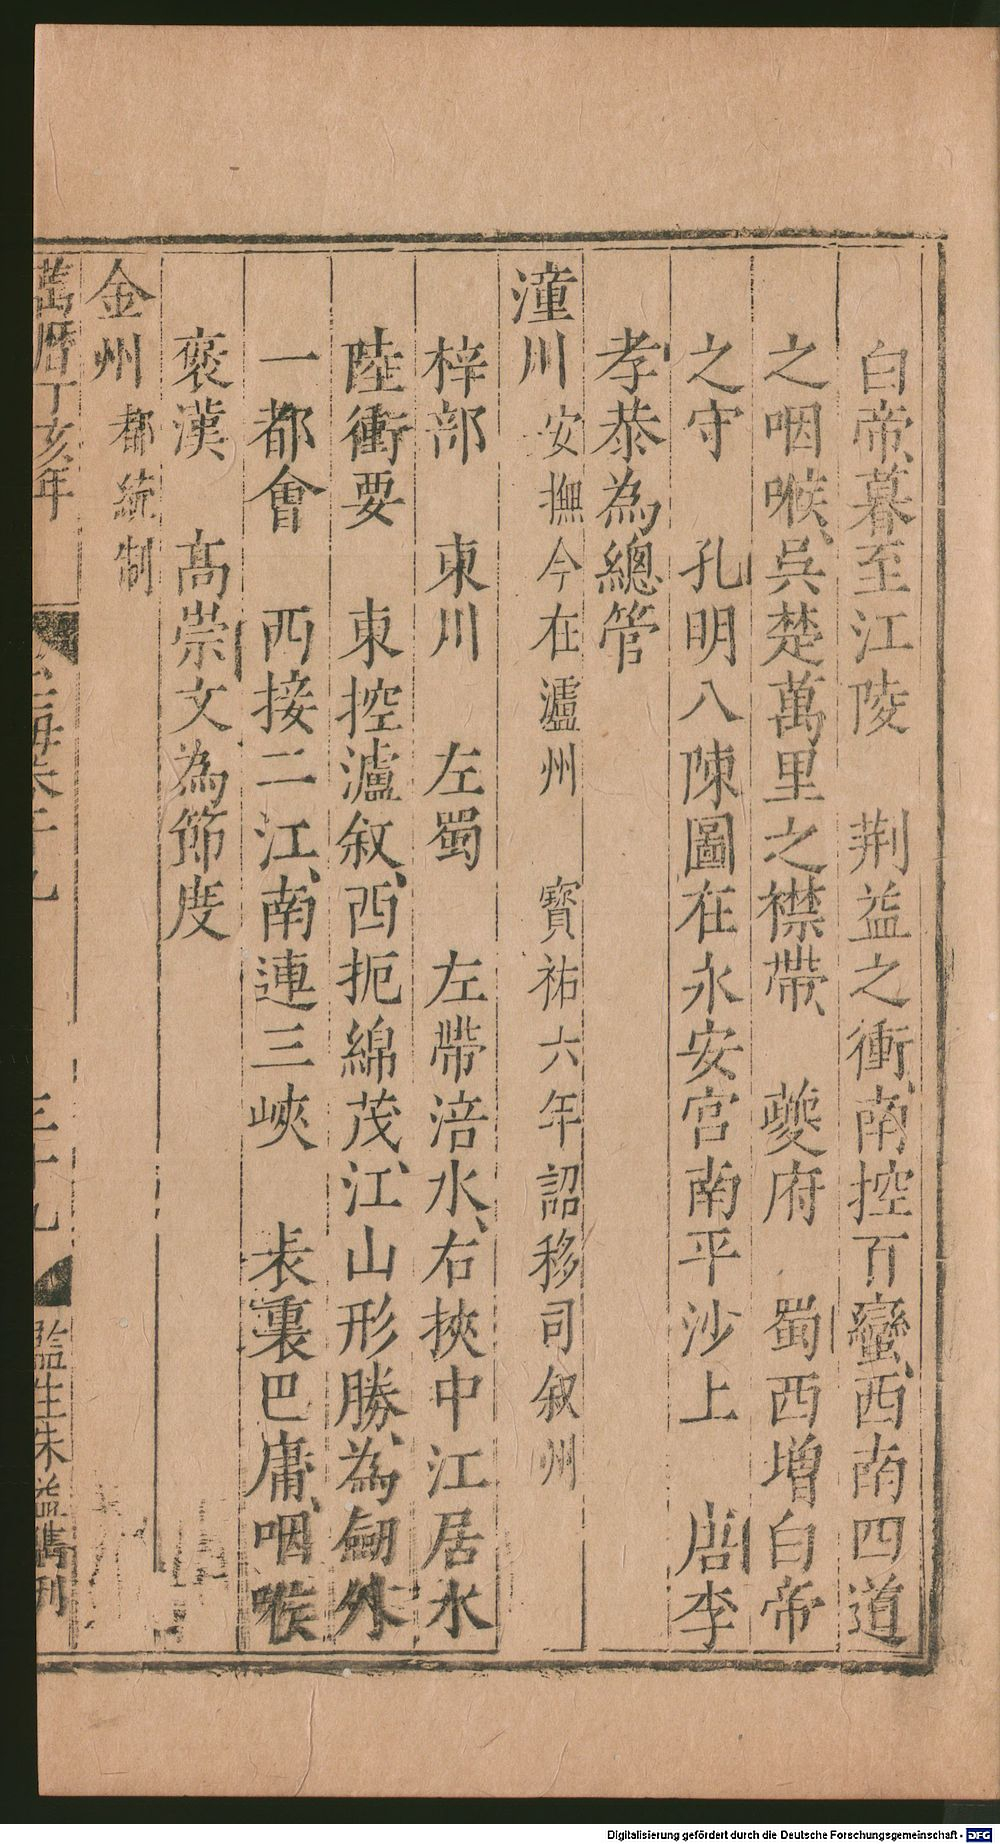 白帝、暮至江陵　荆益之衝、南控百蠻、西南四道
之咽喉、吳楚萬里之襟帶、　夔府　蜀西增白帝
之守　孔明八陳圖在永安宮南平沙上　唐李
孝恭為總管
潼川　安撫今在瀘州　寳祐六年詔移司叙州
梓部　東川　左蜀　左帶涪水、右挾中江居水
陸衝要　東控瀘敘、西扼綿茂、江山形勝、為劔外
一都會　西接二江、南連三峽　表裏巴庸、咽喉
褒漢　髙崇文為節度
金州　都統制
萬曆丁亥年　玉海卷十九　三十九　監生朱益雋刊
Digitalisierung gefördert durch die Deutsche Forschungsgemeinschaft - DFG